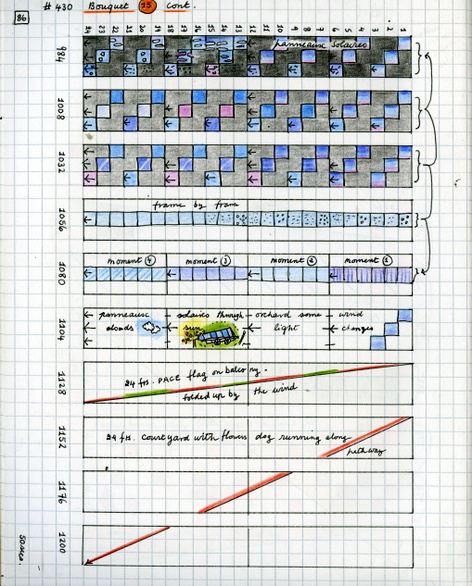 # 430 Bouquet 25 Cont.
86
24 23 22 21 20 19 18 17 16 15 14 13 12 11 10 9 8 7 6 5 4 3 2 1
984
panneaux solaires
1008
1032
1056
frame by frame
1080
moment 4 moment 3 moment 2 moment 1
1104
panneaux solaires through orchard some wind
clouds sun light changes
1128
24 fts. PACE flag on balcony.
folded up by the wind
1152
24 fts. Courtyard with flowers dog running along
pathway
1176
1200
50 secs.